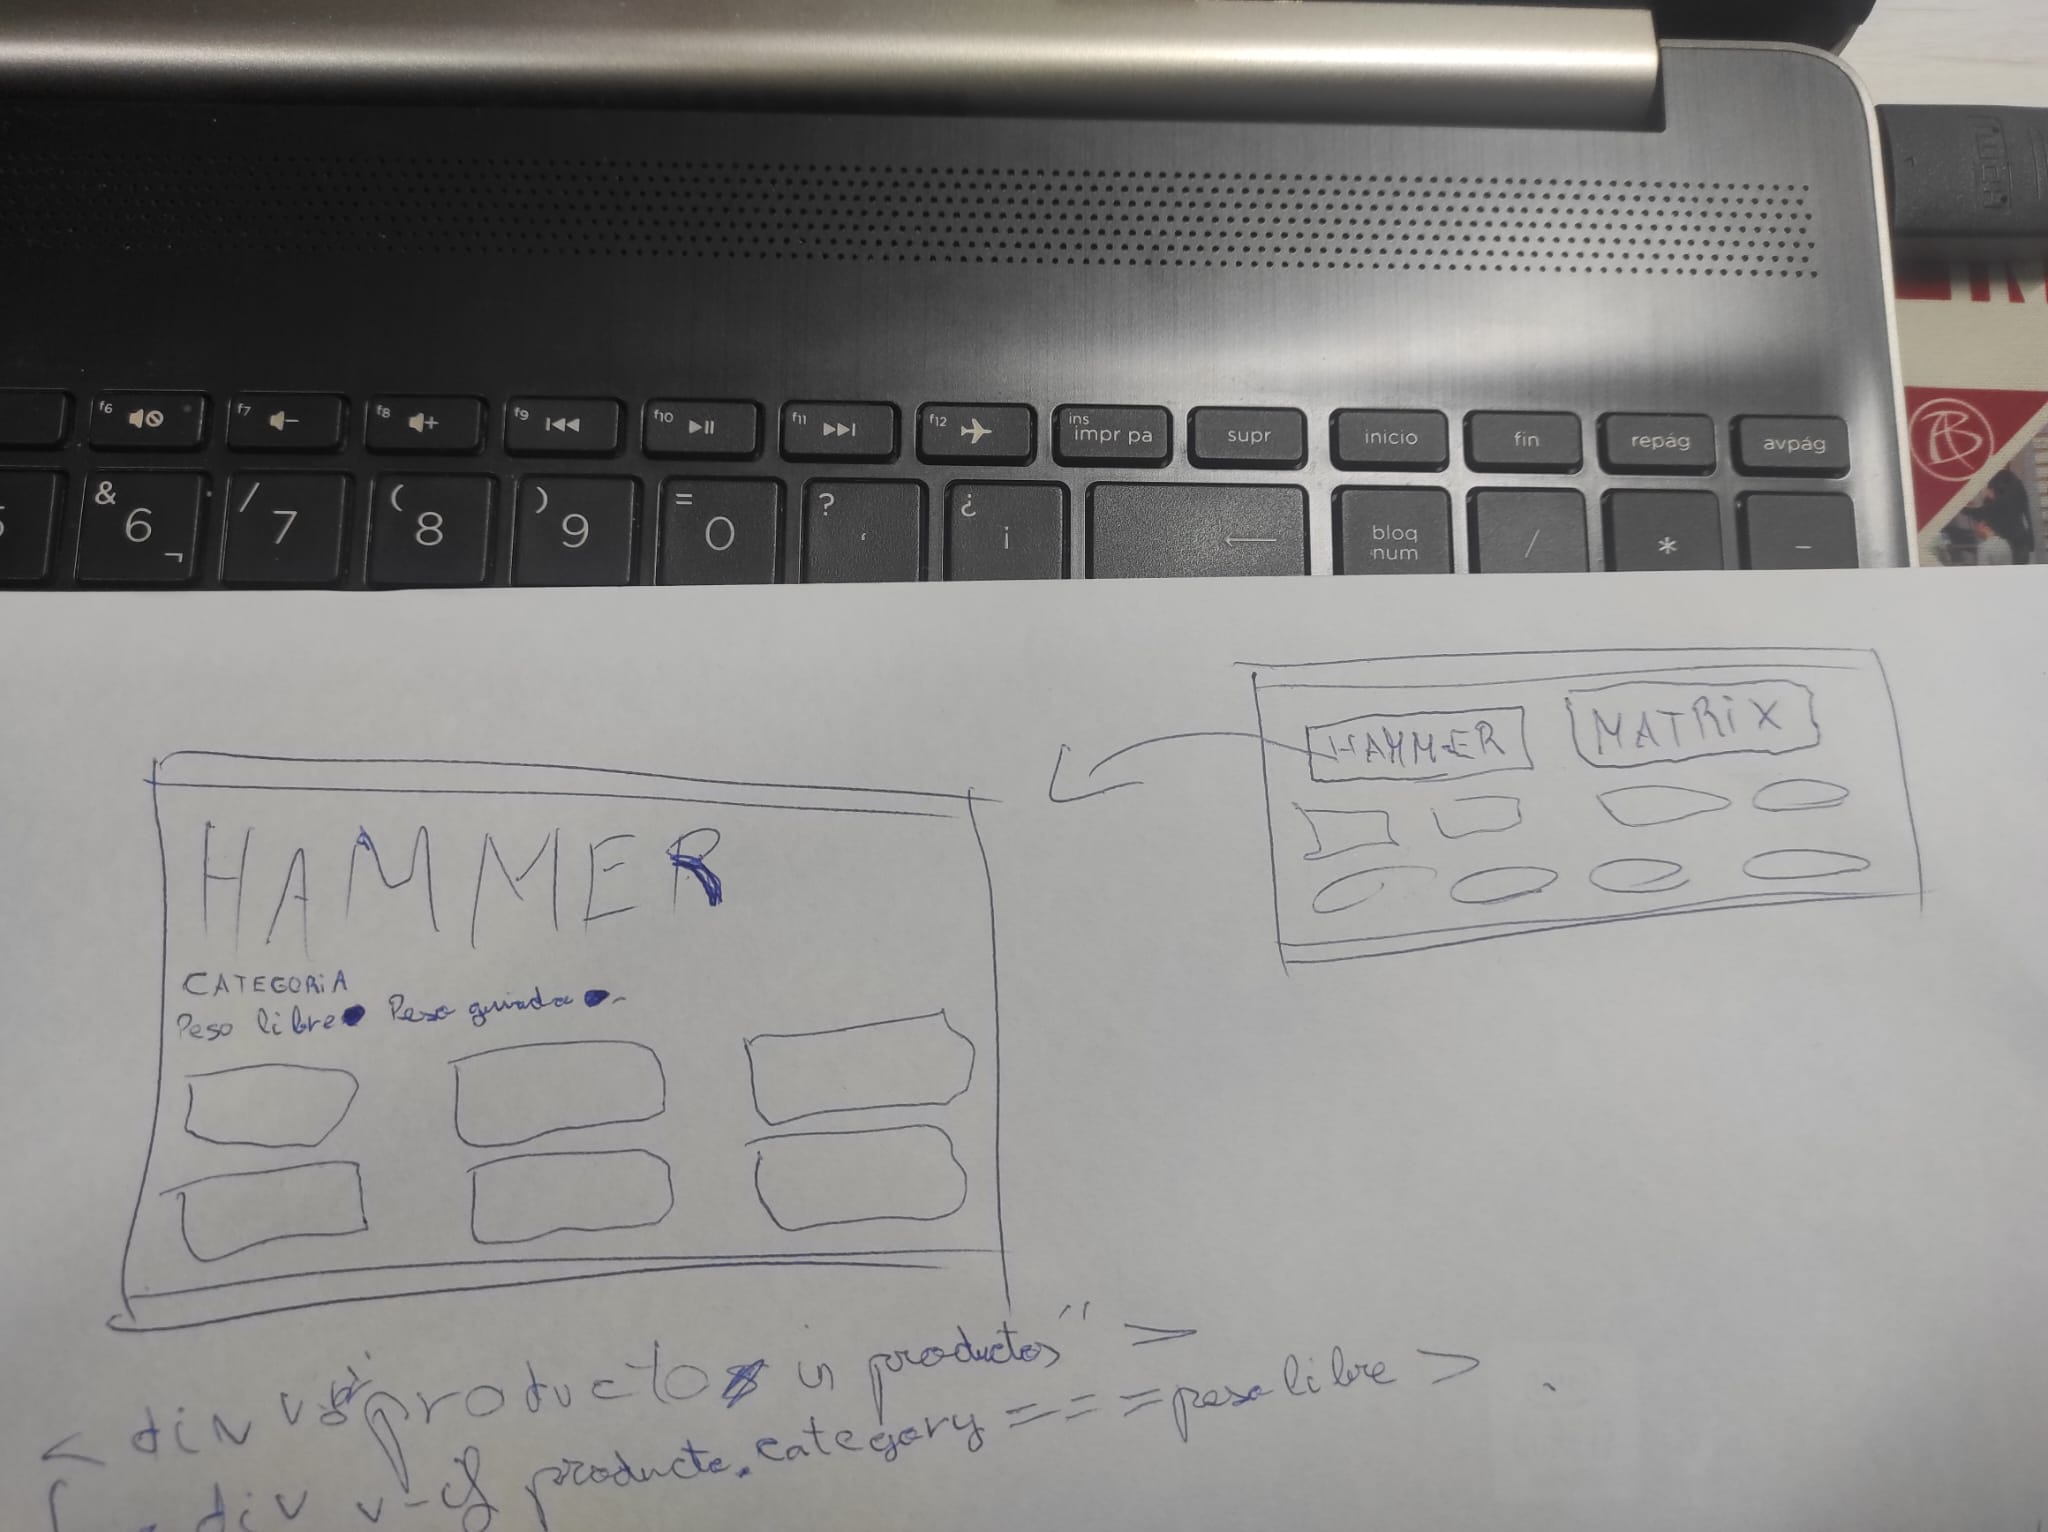 f6 f7 f8 f9 f10 f11 f12 ins impr pa supr inicio fin repág avpág
& 6 ¬ / 7 ( 8 ) 9 = 0 ? ' ¿ ¡ ← bloq num / * -
HAMMER MATRiX
HAMMER
CATEGORiA
Peso libre Peso guiado
< div producto in productos" >
div v-if producto.category === peso libre >